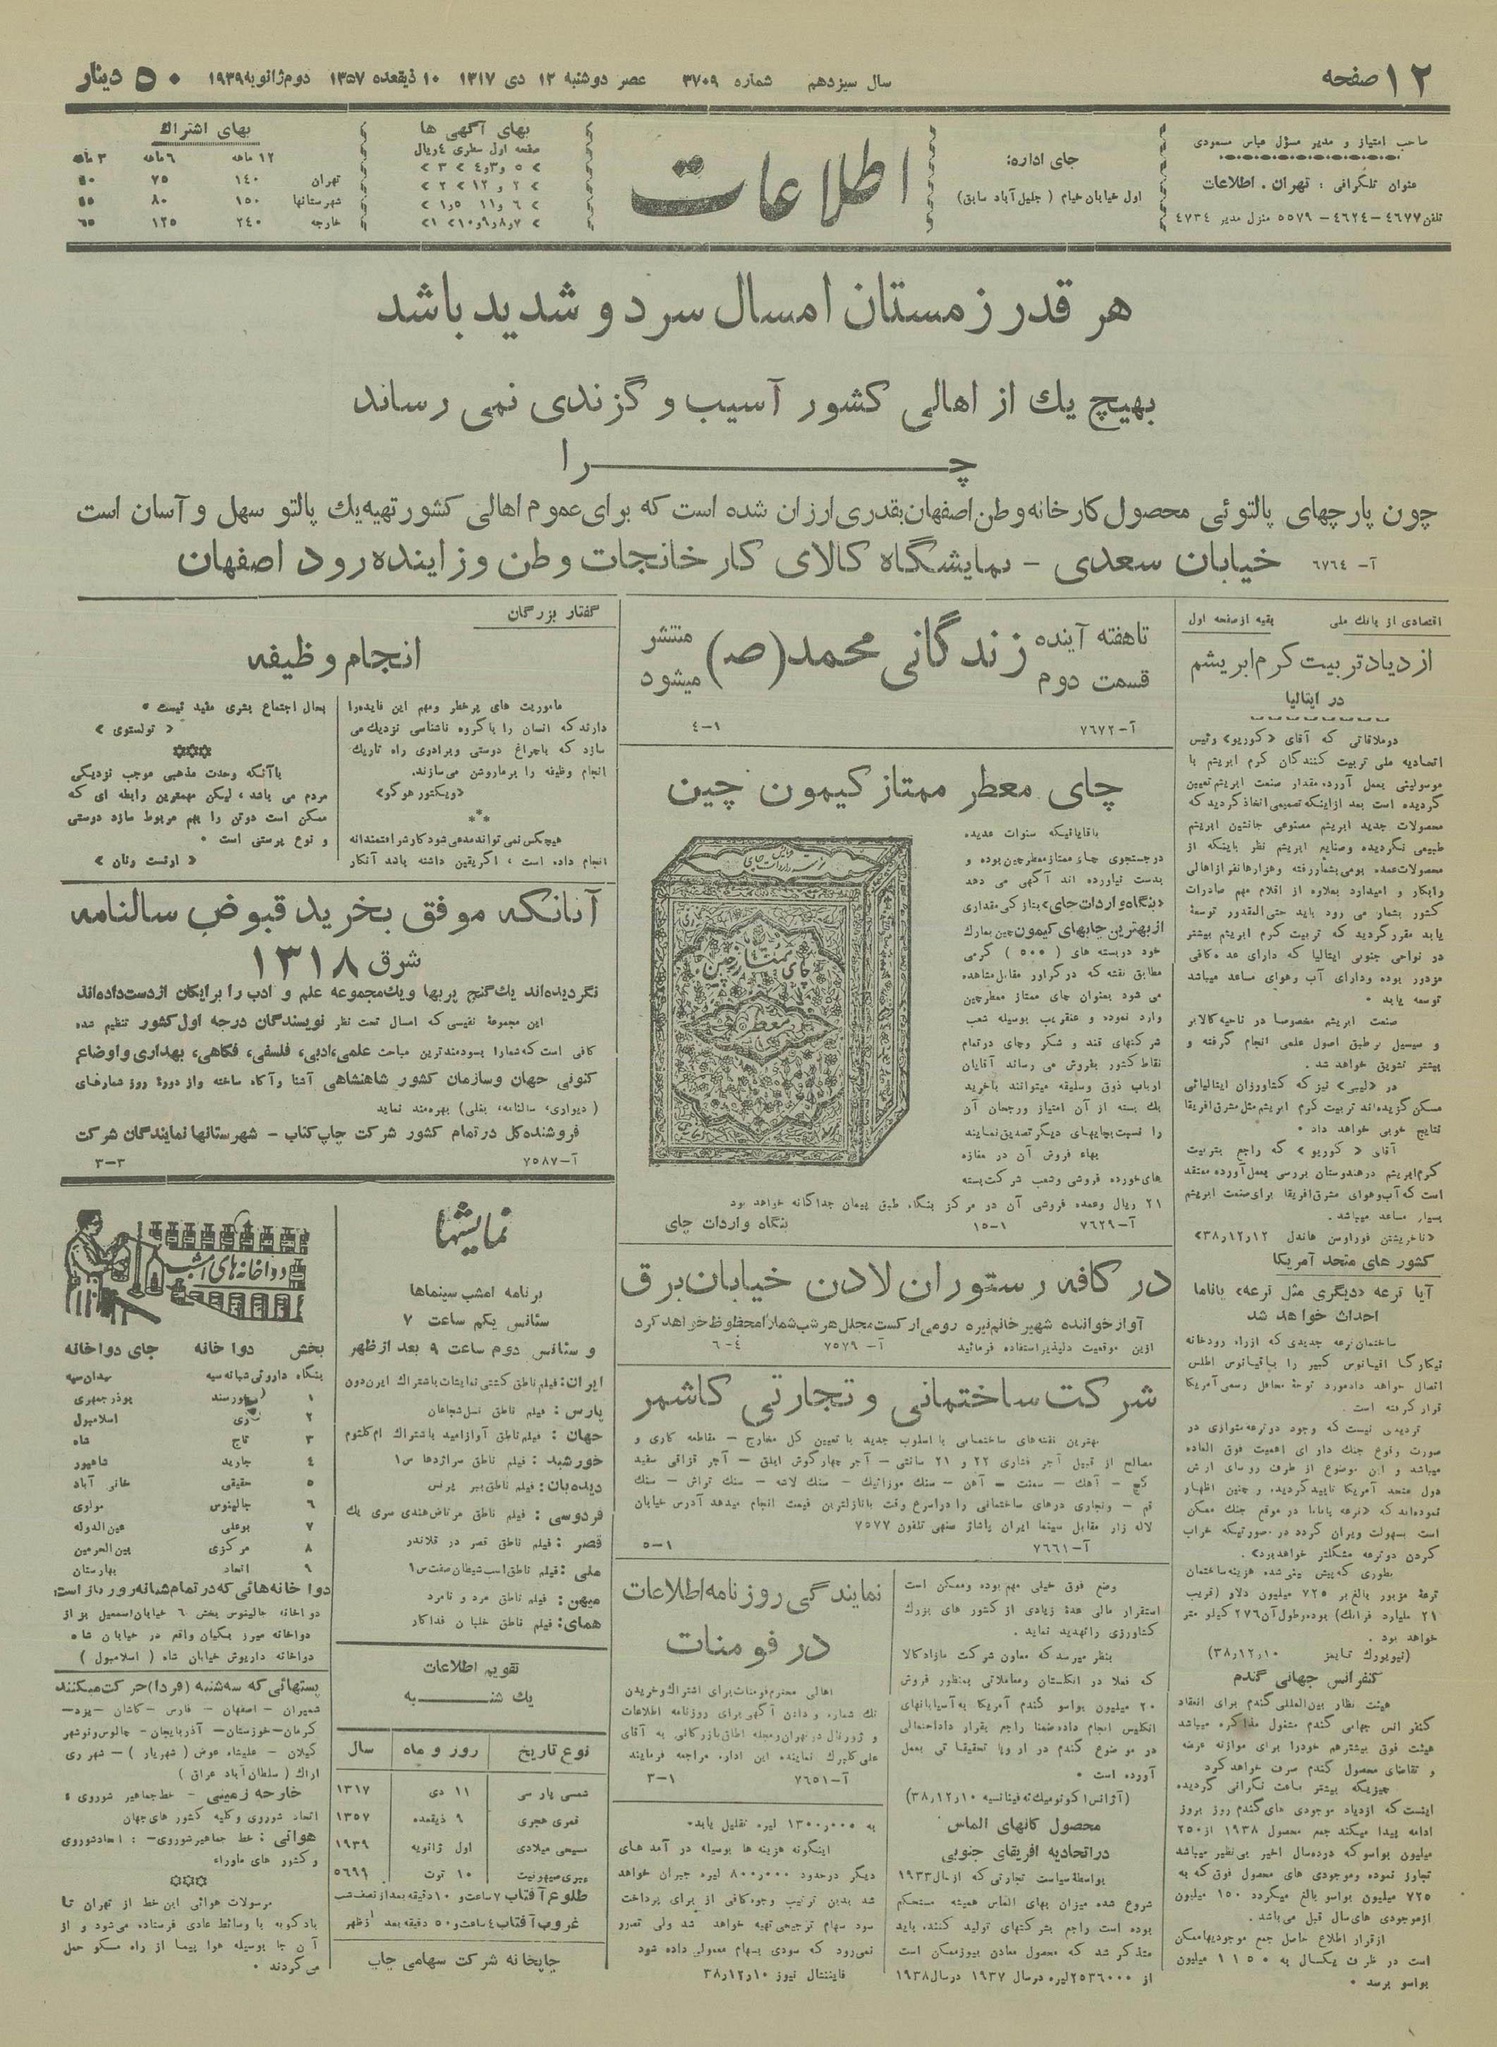 ۱۲ صفحه
سال سیزدهم شماره ۳۷۰۹ عصر دوشنبه ۱۲ دی ۱۳۱۷ ۱۰ ذیقعده ۱۳۵۷ دوم ژانویه ۱۹۳۹
۵۰ دینار
صاحب امتیاز و مدیر مسؤل عباس مسعودی
عنوان تلگرافی : تهران . اطلاعات
تلفن ۴۶۷۷-۴۶۲۴- ۵۵۷۹ منزل مدیر ۴۷۳۴
جای اداره:
اول خیابان خیام ( جلیل آباد سابق)
اطلاعات
بهای آگهی ها
صفحه اول سطری ٤ ریال
بهای اشتراك
۱۲ ماهه ۶ ماهه ۳ ماهه
تهران ۱۴۰ ۷۵
شهرستانها ۱۵۰ ۸۰
خارجه ۲۴۰ ۱۲۵ ۶۵
هر قدر زمستان امسال سرد و شدید باشد
بهیچ یك از اهالی کشور آسیب و گزندی نمی رساند
چرا
چون پارچهای پالتوئی محصول کارخانه وطن اصفهان بقدری ارزان شده است که برای عموم اهالی کشور تهیه یك پالتو سهل و آسان است
آ- ۶۷۶۴ خیابان سعدی - نمایشگاه کالای کارخانجات وطن و زاینده رود اصفهان
اقتصادی از بانك ملی بقیه از صفحه اول
ازدیاد تربیت کرم ابریشم
در ایتالیا
در ملاقاتی که آقای «کوریو» رئیس
اتحادیه ملی تربیت کنندگان کرم ابریشم با
موسولینی بعمل آورد، مقدار صنعت ابریشم تعیین
گردیده است بعد از اینکه تصمیمی اتخاذ گردید که
محصولات جدید ابریشم مصنوعی جانشین ابریشم
طبیعی نگردیده وصنایع ابریشم نظر باینکه از
محصولات عمده بومی بشمار رفته وهزارها نفر از اهالی
کشور بشمار می رود باید حتی المقدور توسعهٔ
یابد مقرر گردید که تربیت کرم ابریشم بیشتر
در نواحی جنوبی ایتالیا که دارای عده کافی
مزدور بوده ودارای آب وهوای مساعد میباشد
توسعه یابد .
صنعت ابریشم مخصوصا در ناحیه کالابر
و سیسیل بر طبق اصول علمی انجام گرفته و
بیشتر تشویق خواهد شد.
در «لیبی» نیز که کشاورزان ایتالیائی
مسکن گزیده اند تربیت کرم ابریشم مثل مشرق افریقا
نتایج خوبی خواهد داد .
آقای « کوریو» که راجع بتربیت
کرم ابریشم در هندوستان بررسی بعمل آورده معتقد
است که آب وهوای مشرق افریقا برای صنعت ابریشم
بسیار مساعد میباشد.
کشور های متحد آمریکا
آیا ترعه «دیگری مثل ترعه» پاناما
احداث خواهد شد
ساختمان ترعه جدیدی که از راه رودخانه
نیکارگا اقیانوس کبیر را باقیانوس اطلس
اتصال خواهد داد مورد توجهٔ محافل رسمی آمریکا
قرار گرفته است .
تردیدی نیست که وجود دو ترعه متوازی در
صورت وقوع جنك دارای اهمیت فوق العاده
میباشد و این موضوع از طرف روسای ارتش
دول متحد آمریکا تایید گردیده، و چنین اظهار
نموده اند که «ترعه پاناما در موقع جنك ممکن
است بسهولت ویران گردد در صورتیکه خراب
کردن دو ترعه مشگلتر خواهد بود» .
بطوری که پیش بینی شده هزینه ساختمان
ترعهٔ مزبور بالغ بر ۷۲۵ میلیون دلار (قریب
۲۱ میلیارد فرانك) بوده و طول آن ۲۷۶ کیلو متر
خواهد بود .
(نیویورك تایمز ۳۸٫۱۲٫۱۰)
کنفرانس جهانی گندم
هیئت نظار بین المللی گندم برای انعقاد
کنفرانس جهانی گندم مشغول مذاکره میباشد
هیئت فوق بیشتر هم خود را برای موازنه عرضه
و تقاضای محصول گندم صرف خواهد کرد
چیزیکه بیشتر باعث نگرانی گردیده
اینست که ازدیاد موجودی های گندم روز بروز
ادامه پیدا میکند جمع محصول ۱۹۳۸ از ۲۵۰
میلیون بواسو که در ده سال اخیر بی نظیر میباشد
تجاوز نموده وموجودی های محصول فوق که به
۷۲۵ میلیون بواسو بالغ میگردد ۱۵۰ میلیون
از موجودی های سال قبل می باشد.
از قرار اطلاع حاصل جمع موجودیها ممکن
است در ظرف یکسال به ۱۱۵۰ میلیون
بواسو برسد .
تا هفته آینده
قسمت دوم
زندگانی محمد (ص)
منتشر
میشود
آ-۷۶۷۲ ۱-۴
چای معطر ممتاز کیمون چین
باقایانیکه سنوات عدیده
در جستجوی چای ممتاز معطر چین بوده و
بدست نیاورده اند آگهی می دهد
«بنگاه واردات چای» بتازکی مقداری
از بهترین چایهای کیمون چین بمارك
خود در بسته های ( ۵۰۰ ) گرمی
مطابق نقشه که در گراور مقابل مشاهده
می شود بعنوان چای ممتاز معطر چین
وارد نموده و عنقریب بوسیله شعب
شرکتهای قند و شکر وچای در تمام
نقاط کشور بفروش می رساند آقایان
ارباب ذوق وسلیقه میتوانند باخرید
یك بسته از آن امتیاز و رجحان آن
را نسبت بچایهای دیگر تصدیق نمایند
بهاء فروش آن در مغازه
های خورده فروشی وشعب شرکت بسته
۲۱ ریال وعمده فروشی آن در مرکز بنگاه طبق پیمان جداگانه خواهد بود
آ-۷۶۲۹ ۱-۱۵ بنگاه واردات چای
چای ممتاز چین
معطر
در کافه رستوران لادن خیابان برق
آواز خواننده شهیر خانم نیره رومی ارکست مجلل هر شب شما را محظوظ خواهد کرد
ازین موقعیت دلپذیر استفاده فرمائید آ- ۷۵۷۹ ۴-۶
شرکت ساختمانی و تجارتی کاشمر
بهترین نقشه های ساختمانی با اسلوب جدید با تعیین کل مخارج - مقاطعه کاری و
مصالح از قبیل آجر فشاری ۲۲ و ۲۱ سانتی - آجر چهارگوش ابلق - آجر قزاقی سفید
گچ - آهك - سمنت - آهن - سنك موزائیك - سنك لاشه - سنك تراش - سنك
قم - ونجاری درهای ساختمانی را در اسرع وقت با نازلترین قیمت انجام میدهد آدرس خیابان
لاله زار مقابل سینما ایران پاساژ سنهی تلفون ۷۵۷۷
آ-۷۶۶۱ ۱-۵
وضع فوق خیلی مهم بوده وممکن است
استقرار مالی عدهٔ زیادی از کشور های بزرك
کشاورزی را تهدید نماید .
بنظر میرسد که معاون شرکت مازاد کالا
که فعلا در انگلستان ومعاملاتی بمنظور فروش
۲۰ میلیون بواسو گندم آمریکا به آسیابانهای
انگلیس انجام داده ضمنا راجع بقرار داد احتمالی
در موضوع گندم در اروپا تحقیقاتی بعمل
آورده است .
(آژانس اکونومیك ته فینانسیه ۳۸٫۱۲٫۱۰)
محصول کانهای الماس
در اتحادیه افریقای جنوبی
بواسطهٔ سیاست تجارتی که از سال ۱۹۳۳
شروع شده میزان بهای الماس همیشه مستحکم
بوده است راجع بشرکتهای تولید کننده باید
متذکر شد که محصول معادن بیوز ممکن است
از ۲۵۳۶۰۰۰ لیره در سال ۱۹۳۷ در سال ۱۹۳۸
نمایندگی روزنامه اطلاعات
در فومنات
اهالی محترم فومنات برای اشتراك وخریدن
تك شماره و دادن آگهی برای روزنامه اطلاعات
و ژورنال دو تهران ومجله اطاق بازرگانی به آقای
علی گلبرك نماینده این اداره مراجعه فرمایند
آ-۷۶۵۱ ۱-۳
به ۱۳۰۰٫۰۰۰ لیره تقلیل یابد.
اینگونه هزینه ها بوسیله در آمد های
دیگر در حدود ۸۰۰٫۰۰۰ لیره جبران خواهد
شد بدین ترتیب وجوه کافی از برای پرداخت
سود سهام ترجیحی تهیه خواهد شد ولی تصور
نمی رود که سودی بسهام معمولی داده شود
فایننشال نیوز ۳۸٫۱۲٫۱۰
گفتار بزرگان
انجام وظیفه
ماموریت های پر خطر ومهم این فایده را
دارند که انسان را با گروه ناشناسی نزدیك می
سازد که با چراغ دوستی وبرادری راه تاریك
انجام وظیفه را بر ما روشن می سازند.
«ویکتور هوگو»
هیچکس نمی تواند مدعی شود کار شرافتمندانه
انجام داده است ، اگر یقین داشته باشد آن کار
بحال اجتماع بشری مفید نیست .
« تولستوی »
با آنکه وحدت مذهبی موجب نزدیکی
مردم می باشد، لیکن مهمترین رابطه ای که
ممکن است دو تن را بهم مربوط سازد دوستی
و نوع پرستی است .
« ارنست رنان »
آنانکه موفق بخرید قبوض سالنامه
شرق ۱۳۱۸
نگردیده اند یك گنج پربها ویك مجموعه علم و ادب را برایگان از دست داده اند
این مجموعهٔ نفیسی که امسال تحت نظر نویسندگان درجه اول کشور تنظیم شده
کافی است که شما را بسودمندترین مباحث علمی، ادبی، فلسفی، فکاهی، بهداری و اوضاع
کنونی جهان وسازمان کشور شاهنشاهی آشنا و آگاه ساخته واز دورهٔ روز شمارهای
( دیواری، سالنامه، بغلی) بهره مند نماید
فروشنده کل در تمام کشور شرکت چاپ کتاب - شهرستانها نمایندگان شرکت
آ-۷۵۸۷ ۳-۳
نمایشها
برنامه امشب سینماها
سئانس یکم ساعت ۷
و سئانس دوم ساعت ۹ بعد از ظهر
ایران: فیلم ناطق کشتی نمایشات باشتراك ایرن دون
پارس: فیلم ناطق نسل شجاعان
جهان: فیلم ناطق آواز امید باشتراك ام کلثوم
خورشید: فیلم ناطق سر اژدها س۱
دیده بان: فیلم ناطق ببر پرنس
فردوسی: فیلم ناطق مرتاض هندی سری یك
قصر: فیلم ناطق قصر در فلاندر
ملی: فیلم ناطق اسب شیطان صفت س۱
میهن: فیلم ناطق مرد و نامرد
همای: فیلم ناطق خلبان فداکار
تقویم اطلاعات
یك شنبه
نوع تاریخ روز و ماه سال
شمسی پارسی ۱۱ دی ۱۳۱۷
قمری هجری ۹ ذیقعده ۱۳۵۷
مسیحی میلادی اول ژانویه ۱۹۳۹
۱۰ توت ۵۶۹۹
طلوع آفتاب ۷ ساعت و ۱۰ دقیقه بعد از نصف شب
غروب آفتاب ٤ ساعت و ۵۰ دقیقه بعد از ظهر
چاپخانه شرکت سهامی چاپ
دواخانه های امشب
بخش دواخانه جای دواخانه
بنگاه داروئی شبانه سپه میدان سپه
۱ خورسند بوذرجمهری
۲ اسلامبول
۳ تاج شاه
۴ جاوید شاهپور
۵ حقیقی خانی آباد
۶ جالینوس مولوی
۷ بوعلی عین الدوله
۸ مرکزی بین الحرمین
۹ اتحاد بهارستان
دواخانه هائی که در تمام شبانه روز باز است:
دواخانه جالینوس بخش ۶ خیابان اسمعیل بزاز
دواخانه میرزا یمگیان واقع در خیابان شاه
دواخانه داریوش خیابان شاه ( اسلامبول )
پستهائی که سه شنبه (فردا) حرکت میکنند
شمیران - اصفهان - فارس - کاشان - یزد-
کرمان- خوزستان- آذربایجان- چالوس ونوشهر
گیلان - علیشاه عوض (شهریار) - شهر ری
اراك ( سلطان آباد عراق )
خارجه زمینی - خط جماهیر شوروی :
اتحاد شوروی وکلیه کشور های جهان
هوائی: خط جماهیر شوروی-: اتحاد شوروی
و کشور های ماوراء
مرسولات هوائی این خط از تهران تا
بادکوبه با وسائط عادی فرستاده می شود و از
آن جا بوسیله هوا پیما از راه مسکو حمل
می گردند .